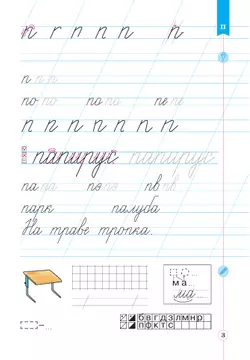 п г п п п п
п
п п п
по по по по пе пе
п п п п п п п п
папирус папирус
па па пя пя пв пв
парк палуба
На траве тропка.
ма...
ма...
б в г д з л м н р
п ф к т с
3